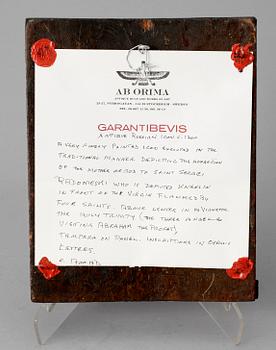 AB ORIMA
GARANTIBEVIS
ANTIQUE RUSSIAN ICON C. 1800
A VERY FINELY PAINTED ICON EXECUTED IN THE
TRADITIONAL MANNER DEPICTING THE APPARITION
OF THE MOTHER OF GOD TO SAINT SERGEI
RADONESKI WHO IS DEPICTED KNEELIN
IN FRONT OF THE VIRGIN FLANKED BY
FOUR SAINTS. ABOVE CENTER IN A VIGNETTE
THE HOLY TRINITY (THE THREE ANGELS
VISITING ABRAHAM THE PROFET)
TEMPERA ON PANEL. INSCRIPTIONS IN
LETTRES.